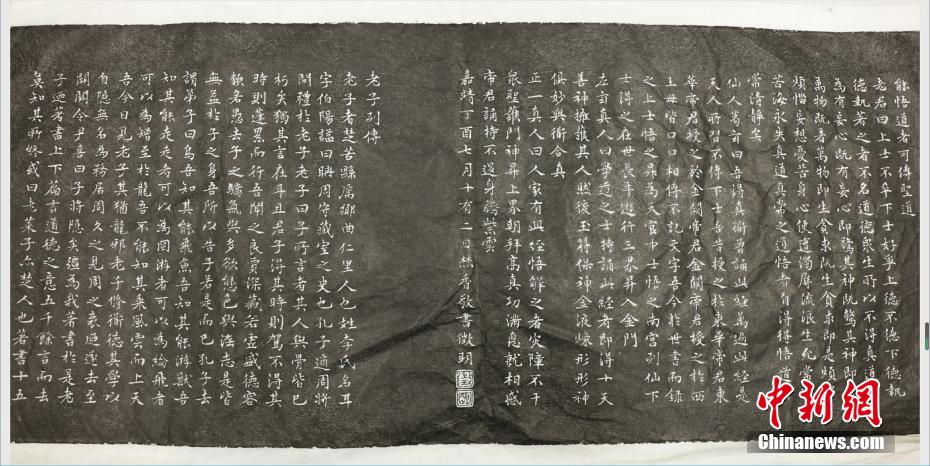 能悟道者可傳聖道
老君曰上士不爭下士好爭上德不德下德執
德執著之者不名道德衆生所以不得真道
為有妄心既有妄心即驚其神既驚其神即
萬物既著萬物即生貪求既生貪求即是煩
煩惱妄想憂苦身心便遭濁辱流浪生死常
苦海永失真道真常之道悟者自得得悟道
常清靜矣
仙人葛翁曰吾得真衜曾誦此經萬過此經是
天人所習不傳下士吾昔授之於東華帝君東
華帝君授之於金闕帝君金闕帝君授之於西
王母皆口口相傳不記文字吾今於世書而録
之上士悟之昇為天官中士悟之南宮列仙下
士得之在世長年遊行三界昇入金門
左玄真人曰學道之士持誦此經者即得十天
善神擁護其人然後玉符保神金液煉形形神
俱妙與衜合真
正一真人曰人家有此經悟解之者災障不干
衆聖護門神昇上界朝拜高真功滿惪就相感
帝君誦持不退身騰紫雲
嘉靖丁酉七月十有二日焚香敬書徵明
老子列傳
老子者楚苦縣厲鄉曲仁里人也姓李氏名耳
字伯陽謚曰聃周守藏室之史也孔子適周將
問禮於老子老子曰子所言者其人與骨皆已
朽矣獨其言在耳且君子得其時則駕不得其
時則蓬累而行吾聞之良賈深藏若虛盛德容
貌若愚去子之驕氣與多欲態色與淫志是皆
無益於子之身吾所以告子若是而已孔子去
謂弟子曰鳥吾知其能飛魚吾知其能游獸吾
知其能走走者可以為罔游者可以為綸飛者
可以為矰至於龍吾不能知其乘風雲而上天
吾今日見老子其猶龍邪老子修衜德其學以
自隱無名為務居周久之見周之衰迺遂去至
關關令尹喜曰子將隱矣彊為我著書於是老
子迺著書上下篇言道德之意五千餘言而去
莫知其所終或曰老萊子亦楚人也著書十五
中新網
Chinanews.com